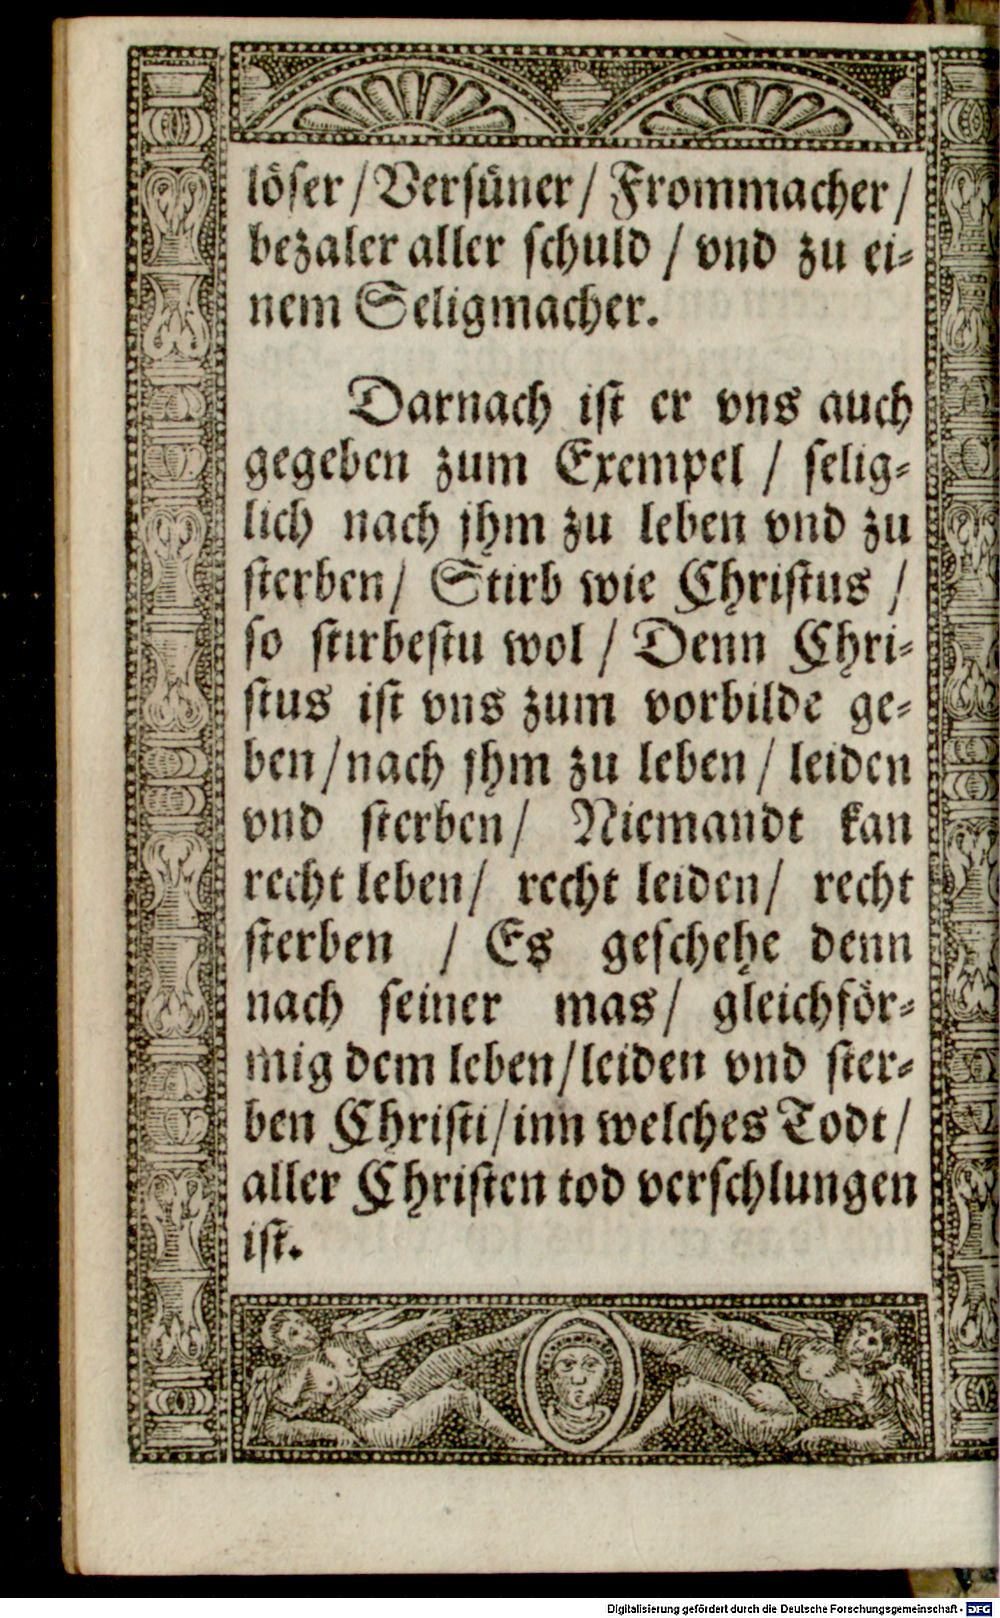 löser / Versüner / Frommacher /
bezaler aller schuld / vnd zu ei⸗
nem Seligmacher.
Darnach ist er vns auch
gegeben zum Exempel / selig⸗
lich nach jhm zu leben vnd zu
sterben / Stirb wie Christus /
so stirbestu wol / Denn Chri⸗
stus ist vns zum vorbilde ge⸗
ben / nach jhm zu leben / leiden
vnd sterben / Niemandt kan
recht leben / recht leiden / recht
sterben / Es geschehe denn
nach seiner mas / gleichför⸗
mig dem leben / leiden vnd ster⸗
ben Christi / inn welches Todt /
aller Christen tod verschlungen
ist.
Digitalisierung gefördert durch die Deutsche Forschungsgemeinschaft - DFG